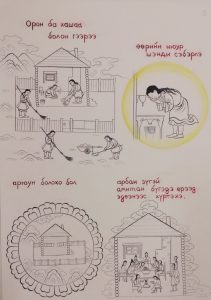 Орон ба хашаа
болон гээрээ
өөрийн нюур
шэнди сэбэрлэ
ариун болохо бол
арбан зүгэй
амитан бүгэдэ ерээд
эдеэнээс хүртэхэ.